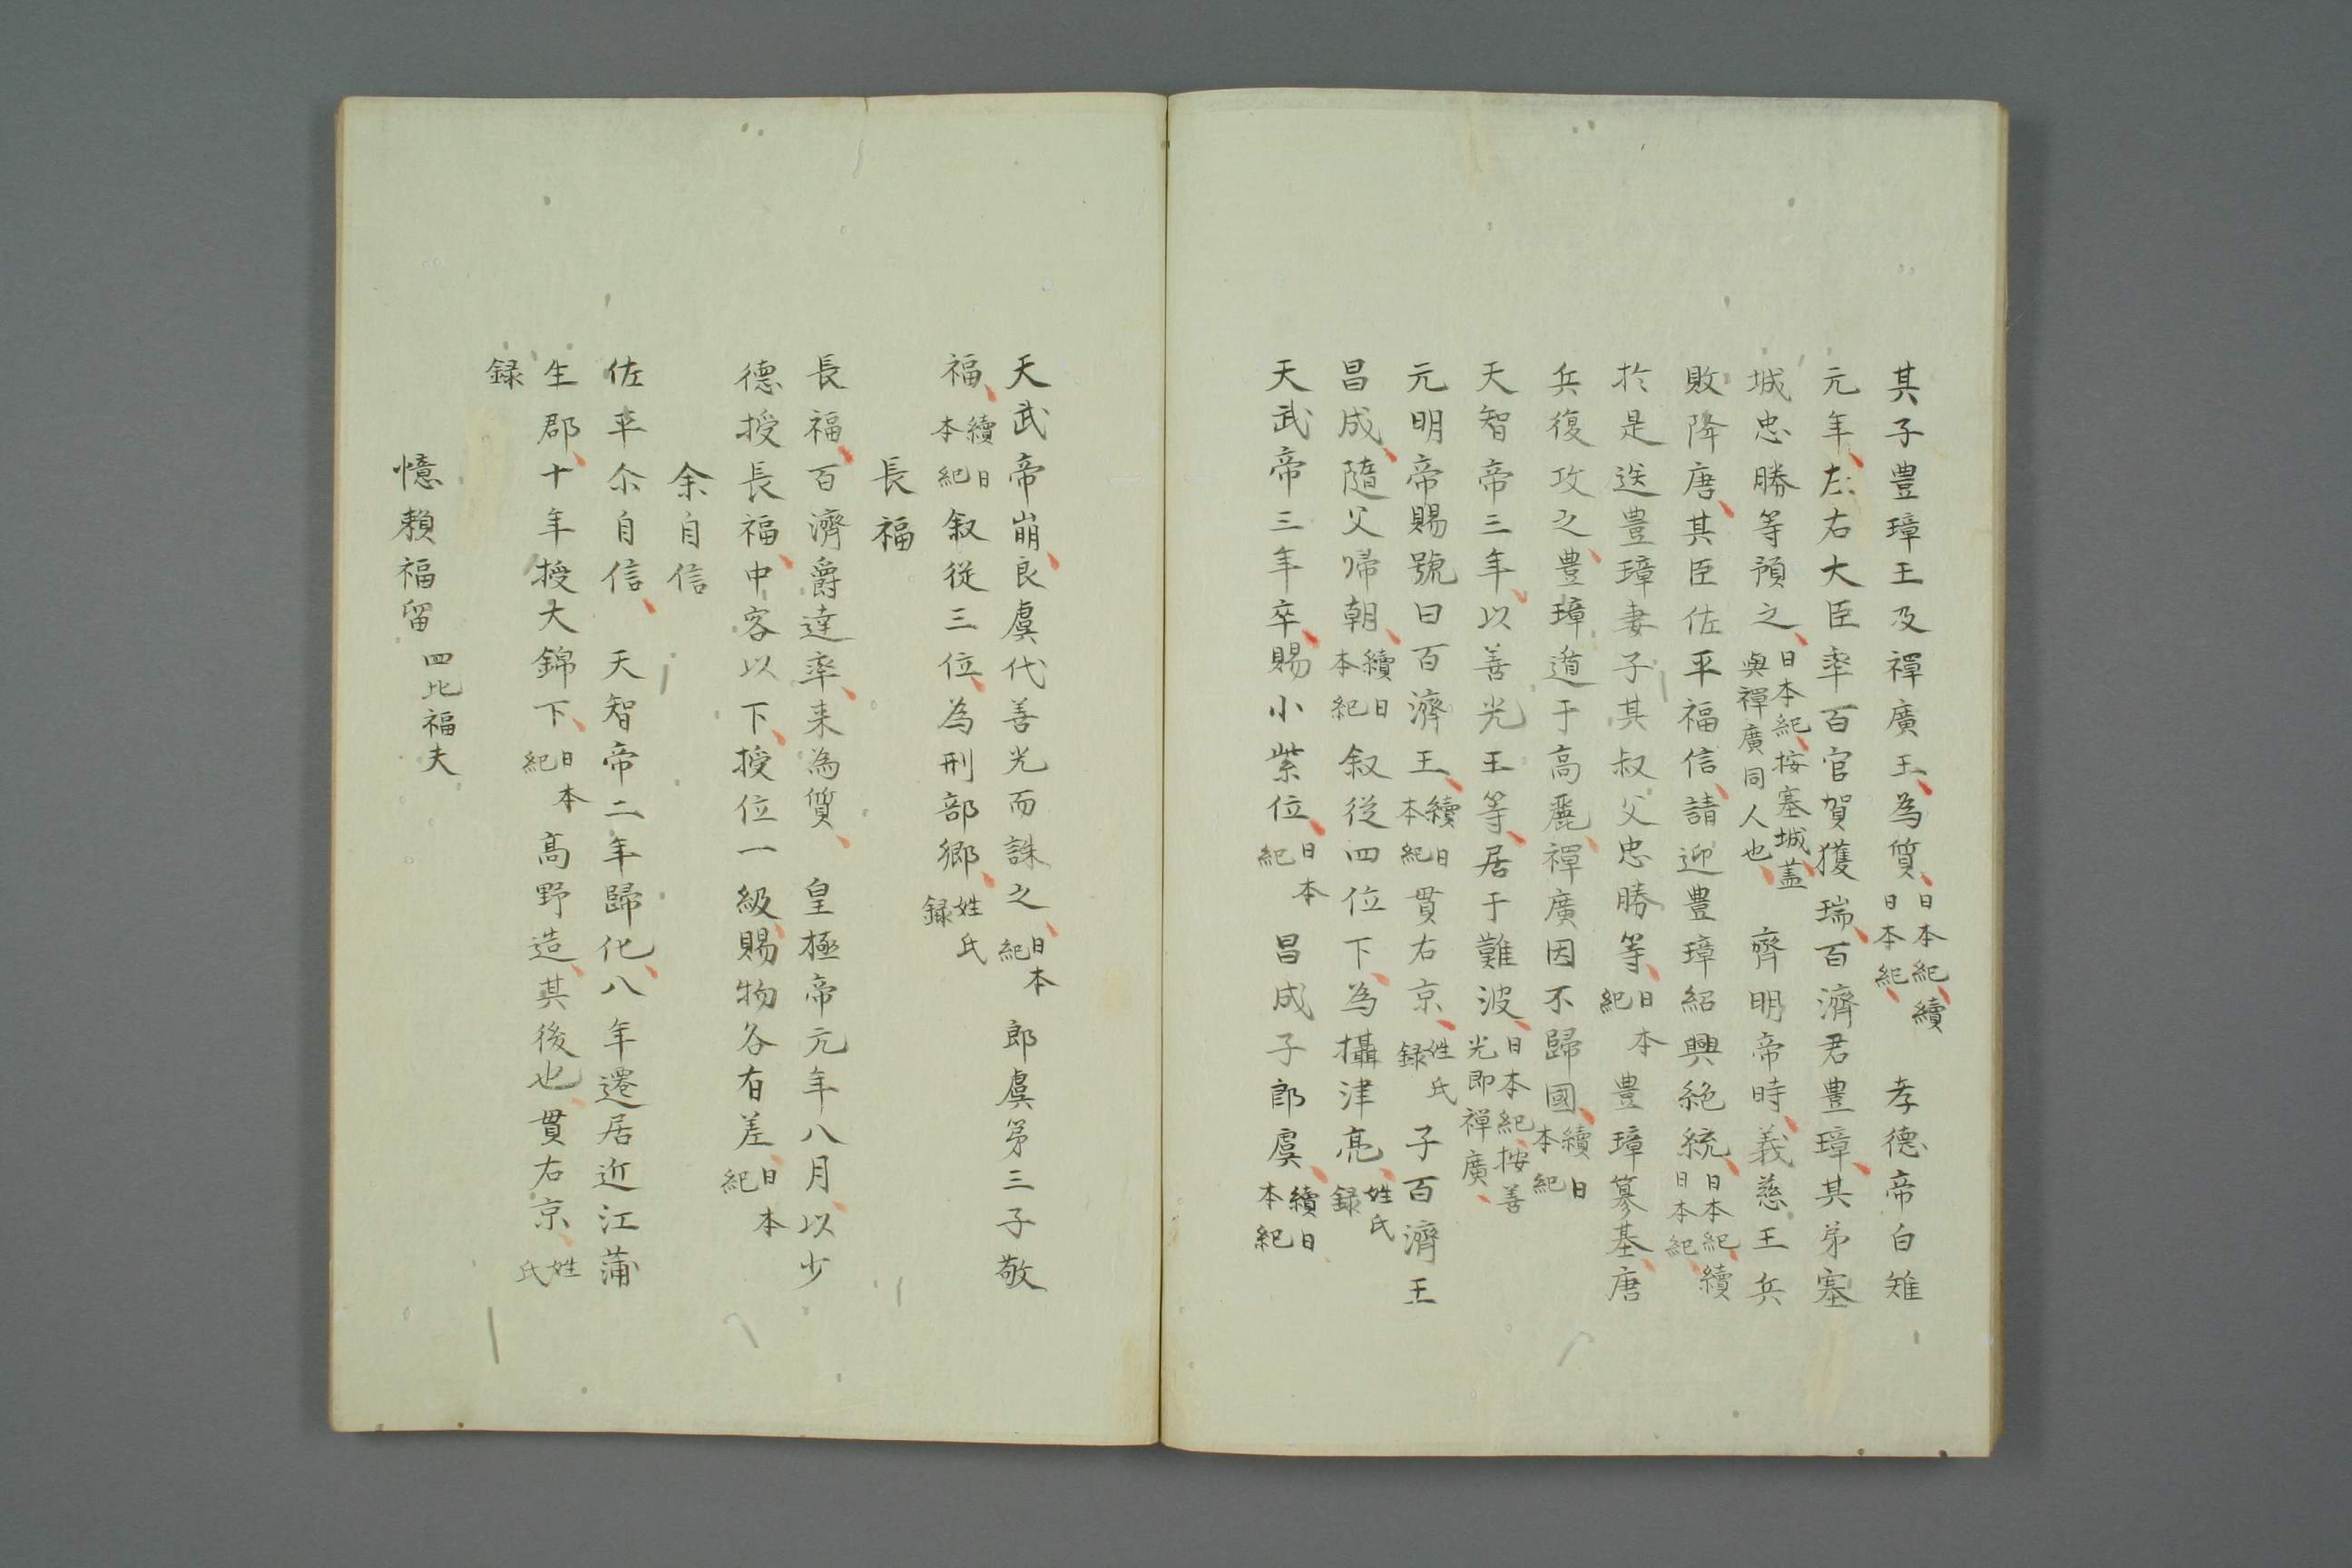 其子豊璋王及禪廣王為質日本紀續日本紀　孝德帝白雉
元年左右大臣率百官賀獲瑞百濟君豊璋其弟塞
城忠勝等預之日本紀按塞城蓋與禪廣同人也　齊明帝時義慈王兵
敗降唐其臣佐平福信請迎豊璋紹興絶統日本紀續日本紀
於是送豊璋妻子其叔父忠勝等日本紀豊璋簒基唐
兵復攻之豊璋遁于高麗禪廣因不歸國續日本紀
天智帝三年以善光王等居于難波日本紀按善光即禪廣
元明帝賜號曰百濟王續日本紀貫右京姓氏録子百濟王
昌成隨父帰朝續日本紀叙從四位下為攝津亮姓氏録
天武帝三年卒賜小紫位日本紀昌成子郎虞續日本紀
天武帝崩良虞代善光而誄之日本紀郎虞第三子敬
福續日本紀叙從三位為刑部郷姓氏録
長福
長福百濟爵達率来為質　皇極帝元年八月以少
德授長福中客以下授位一級賜物各有差日本紀
余自信
佐平尒自信　天智帝二年歸化八年遷居近江蒲
生郡十年授大錦下日本紀高野造其後也貫右京姓氏
録
憶頼福留四比福夫